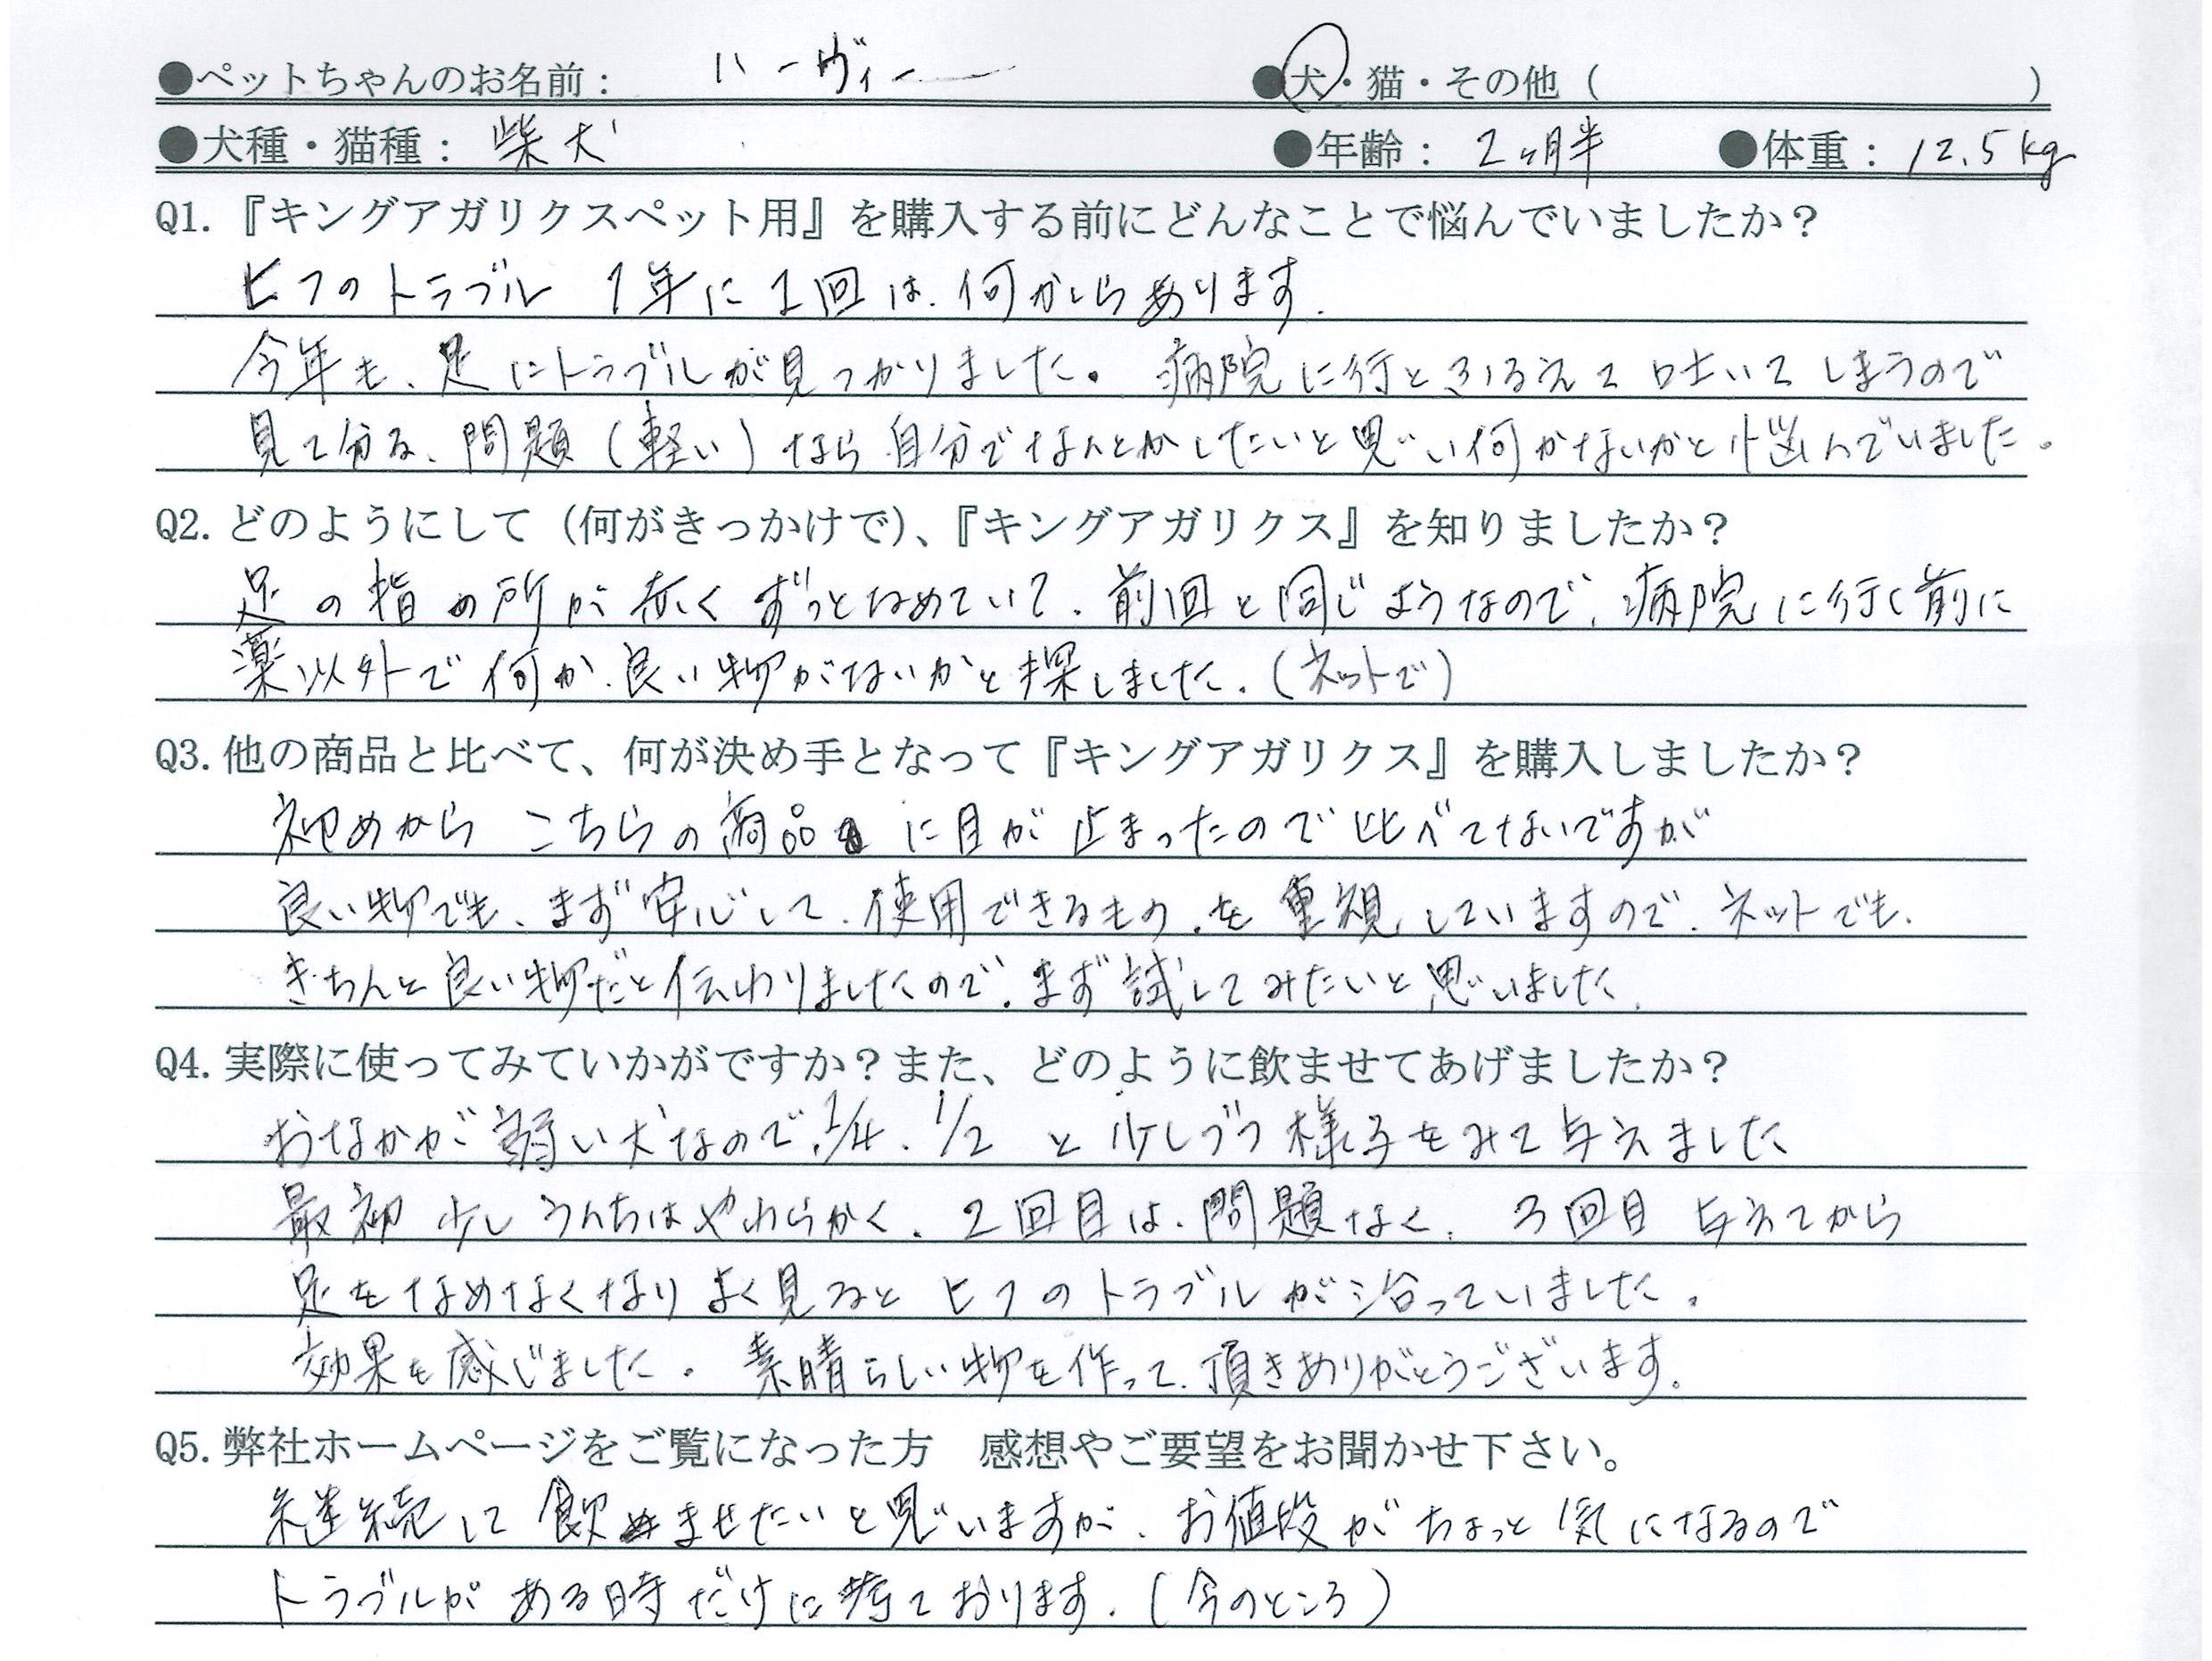 ●ペットちゃんのお名前： ハーヴィー ●犬・猫・その他（ ）
●犬種・猫種： 柴犬 ●年齢： 2ヶ月半 ●体重： 12.5kg
Q1.『キングアガリクスペット用』を購入する前にどんなことで悩んでいましたか？
ヒフのトラブル 1年に1回は、何かしらあります.
今年も、足にトラブルが見つかりました。病院に行とふるえて吐いてしまうので
見て分る、問題（軽い）なら自分でなんとかしたいと思い何かないかと悩んでいました。
Q2.どのようにして（何がきっかけで）、『キングアガリクス』を知りましたか？
足の指の所が赤くずっとなめていて、前回と同じようなので、病院に行く前に
薬以外で何か、良い物がないかと探しました.（ネットで）
Q3.他の商品と比べて、何が決め手となって『キングアガリクス』を購入しましたか？
初めから こちらの商品に目が止まったので比べてないですが
良い物でも、まず安心して、使用できるもの、を重視していますので、ネットでも、
きちんと良い物だと伝わりましたので、まず試してみたいと思いました.
Q4.実際に使ってみていかがですか？また、どのように飲ませてあげましたか？
おなかが弱い犬なので、1/4、1/2 と少しづつ様子をみて与えました
最初少しうんちはやわらかく、2回目は、問題なく、3回目 与えてから
足をなめなくなりよく見ると ヒフのトラブルが治っていました。
効果を感じました。素晴らしい物を作って、頂きありがとうございます.
Q5.弊社ホームページをご覧になった方 感想やご要望をお聞かせ下さい。
継続して飲ませたいと思いますが、お値段がちょっと気になるので
トラブルがある時だけに考ております.（今のところ）